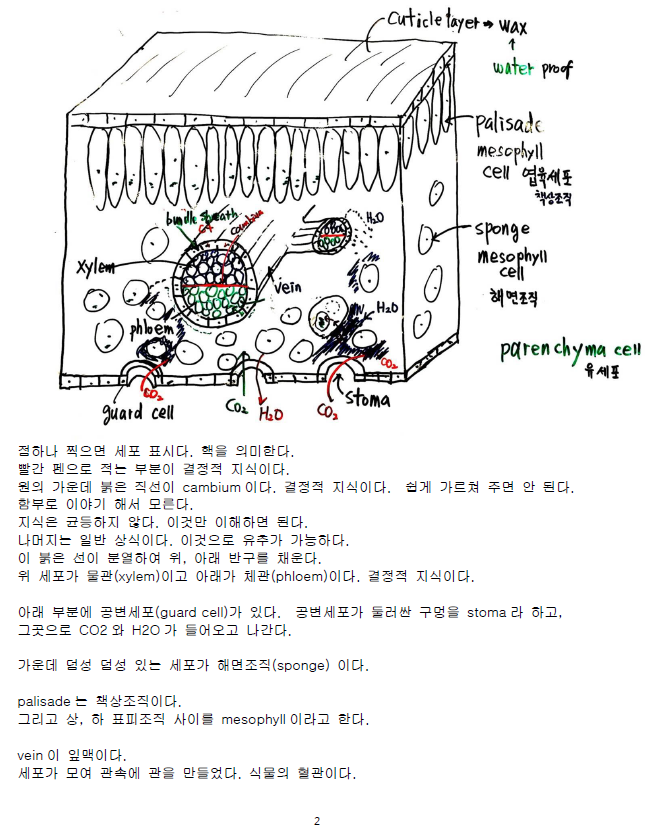 cuticle layer → wax
↑
water proof
palisade
mesophyll
cell 엽육세포
책상조직
bundle sheath
C4
cambium
H₂O
xylem
sponge
mesophyll
cell
해면조직
vein
H₂O
phloem
parenchyma cell
유세포
CO₂
CO₂
guard cell
CO₂
H₂O
CO₂
stoma
점하나 찍으면 세포 표시다. 핵을 의미한다.
빨간 펜으로 적는 부분이 결정적 지식이다.
원의 가운데 붉은 직선이 cambium이다. 결정적 지식이다. 쉽게 가르쳐 주면 안 된다.
함부로 이야기 해서 모른다.
지식은 균등하지 않다. 이것만 이해하면 된다.
나머지는 일반 상식이다. 이것으로 유추가 가능하다.
이 붉은 선이 분열하여 위, 아래 반구를 채운다.
위 세포가 물관(xylem)이고 아래가 체관(phloem)이다. 결정적 지식이다.
아래 부분에 공변세포(guard cell)가 있다. 공변세포가 둘러싼 구멍을 stoma라 하고,
그곳으로 CO2와 H2O가 들어오고 나간다.
가운데 덜성 덜성 있는 세포가 해면조직(sponge) 이다.
palisade는 책상조직이다.
그리고 상, 하 표피조직 사이를 mesophyll이라고 한다.
vein이 잎맥이다.
세포가 모여 관속에 관을 만들었다. 식물의 혈관이다.
2